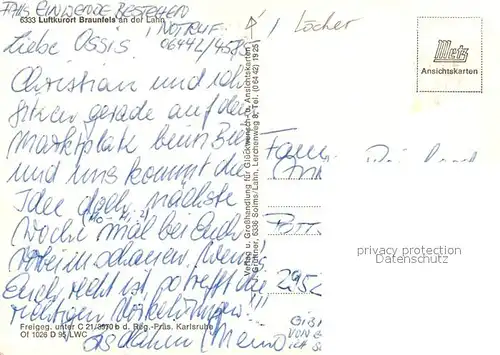 FALLS EINWENDE BESTEHEN
6333 Luftkurort Braunfels an der Lahn
, NOTRUF:
06442/4585
1 Löcher
Liebe Ossis,
Christian und ich
sitzen gerade auf dem
Marktplatz beim Bier
und uns kommt die
Idee doch nächste
Woche mal bei Euch
vorbeizuschauen. Wenn
Euch recht ist, so trefft die
richtigen Vorkehrungen!!!
Freigeg. unter C 21/8570 b d. Reg.-Präs. Karlsruhe
Of 1026 D 95 LWC
Verlag u. Großhandlung für Glückwunsch- u. Ansichtskarten
J. Grüttner, 6336 Solms/Lahn, Lerchenweg 8, Tel. (0 64 42) 19 25
Metz
Ansichtskarten
Fam.
295
privacy protection
Datenschutz